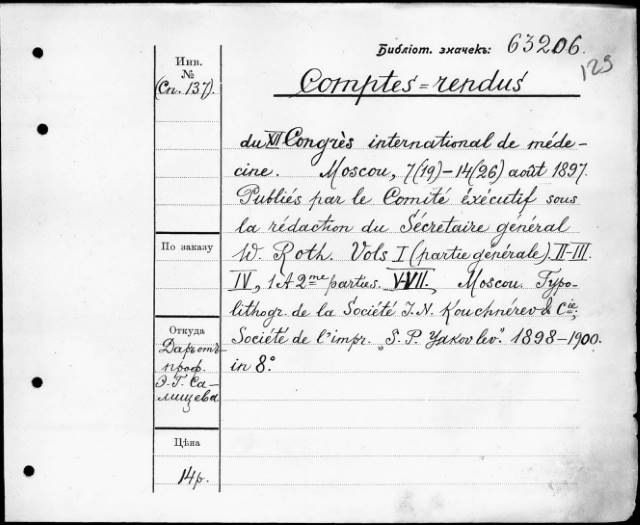 Библіот. значекъ: 63206.
125
Инв.
№
(Сп. 137).
Comptes=rendus
du XII Congrès international de méde-
cine. Moscou, 7(19)–14(26) août 1897.
Publiés par le Comité éxécutif sous
la rédaction du Sécretaire général
W. Roth. Vols I (partie générale). II–III.
IV, 1 & 2me parties. V–VII. Moscou. Typo-
lithogr. de la Société J. N. Kouchnérev & Cie;
Société de l'impr. „S. P. Yakovlev". 1898–1900.
in 8°.
По заказу
Откуда
Даръ отъ
проф.
Э. Г. Са-
лищева
Цѣна
14 р.